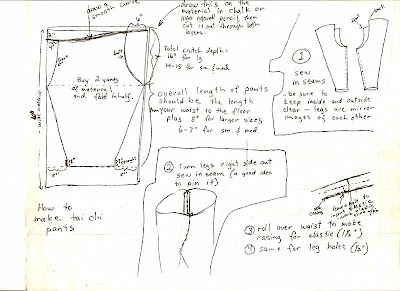 draw a
smooth curve
6"
draw this on the
material in chalk or
light colored pencil, then
cut it out through both
layers.
Total
crotch depth=
16" for lg
14-15 for sm & med.
front
back
Buy 2 yards
of material
and fold in half.
overall length of pants
should be the length
your waist to the floor
plus 8" for larger sizes
6-7" for sm. & med.
How to
make tai chi
pants
①
sew
in seams
- be sure to
keep inside and outside
clear - legs are mirror
images of each other
② Turn legs right side out
sew in seam (a good idea
to pin it)
③ roll over waist to make
casing for elastic (1½")
④ same for leg holes (½")